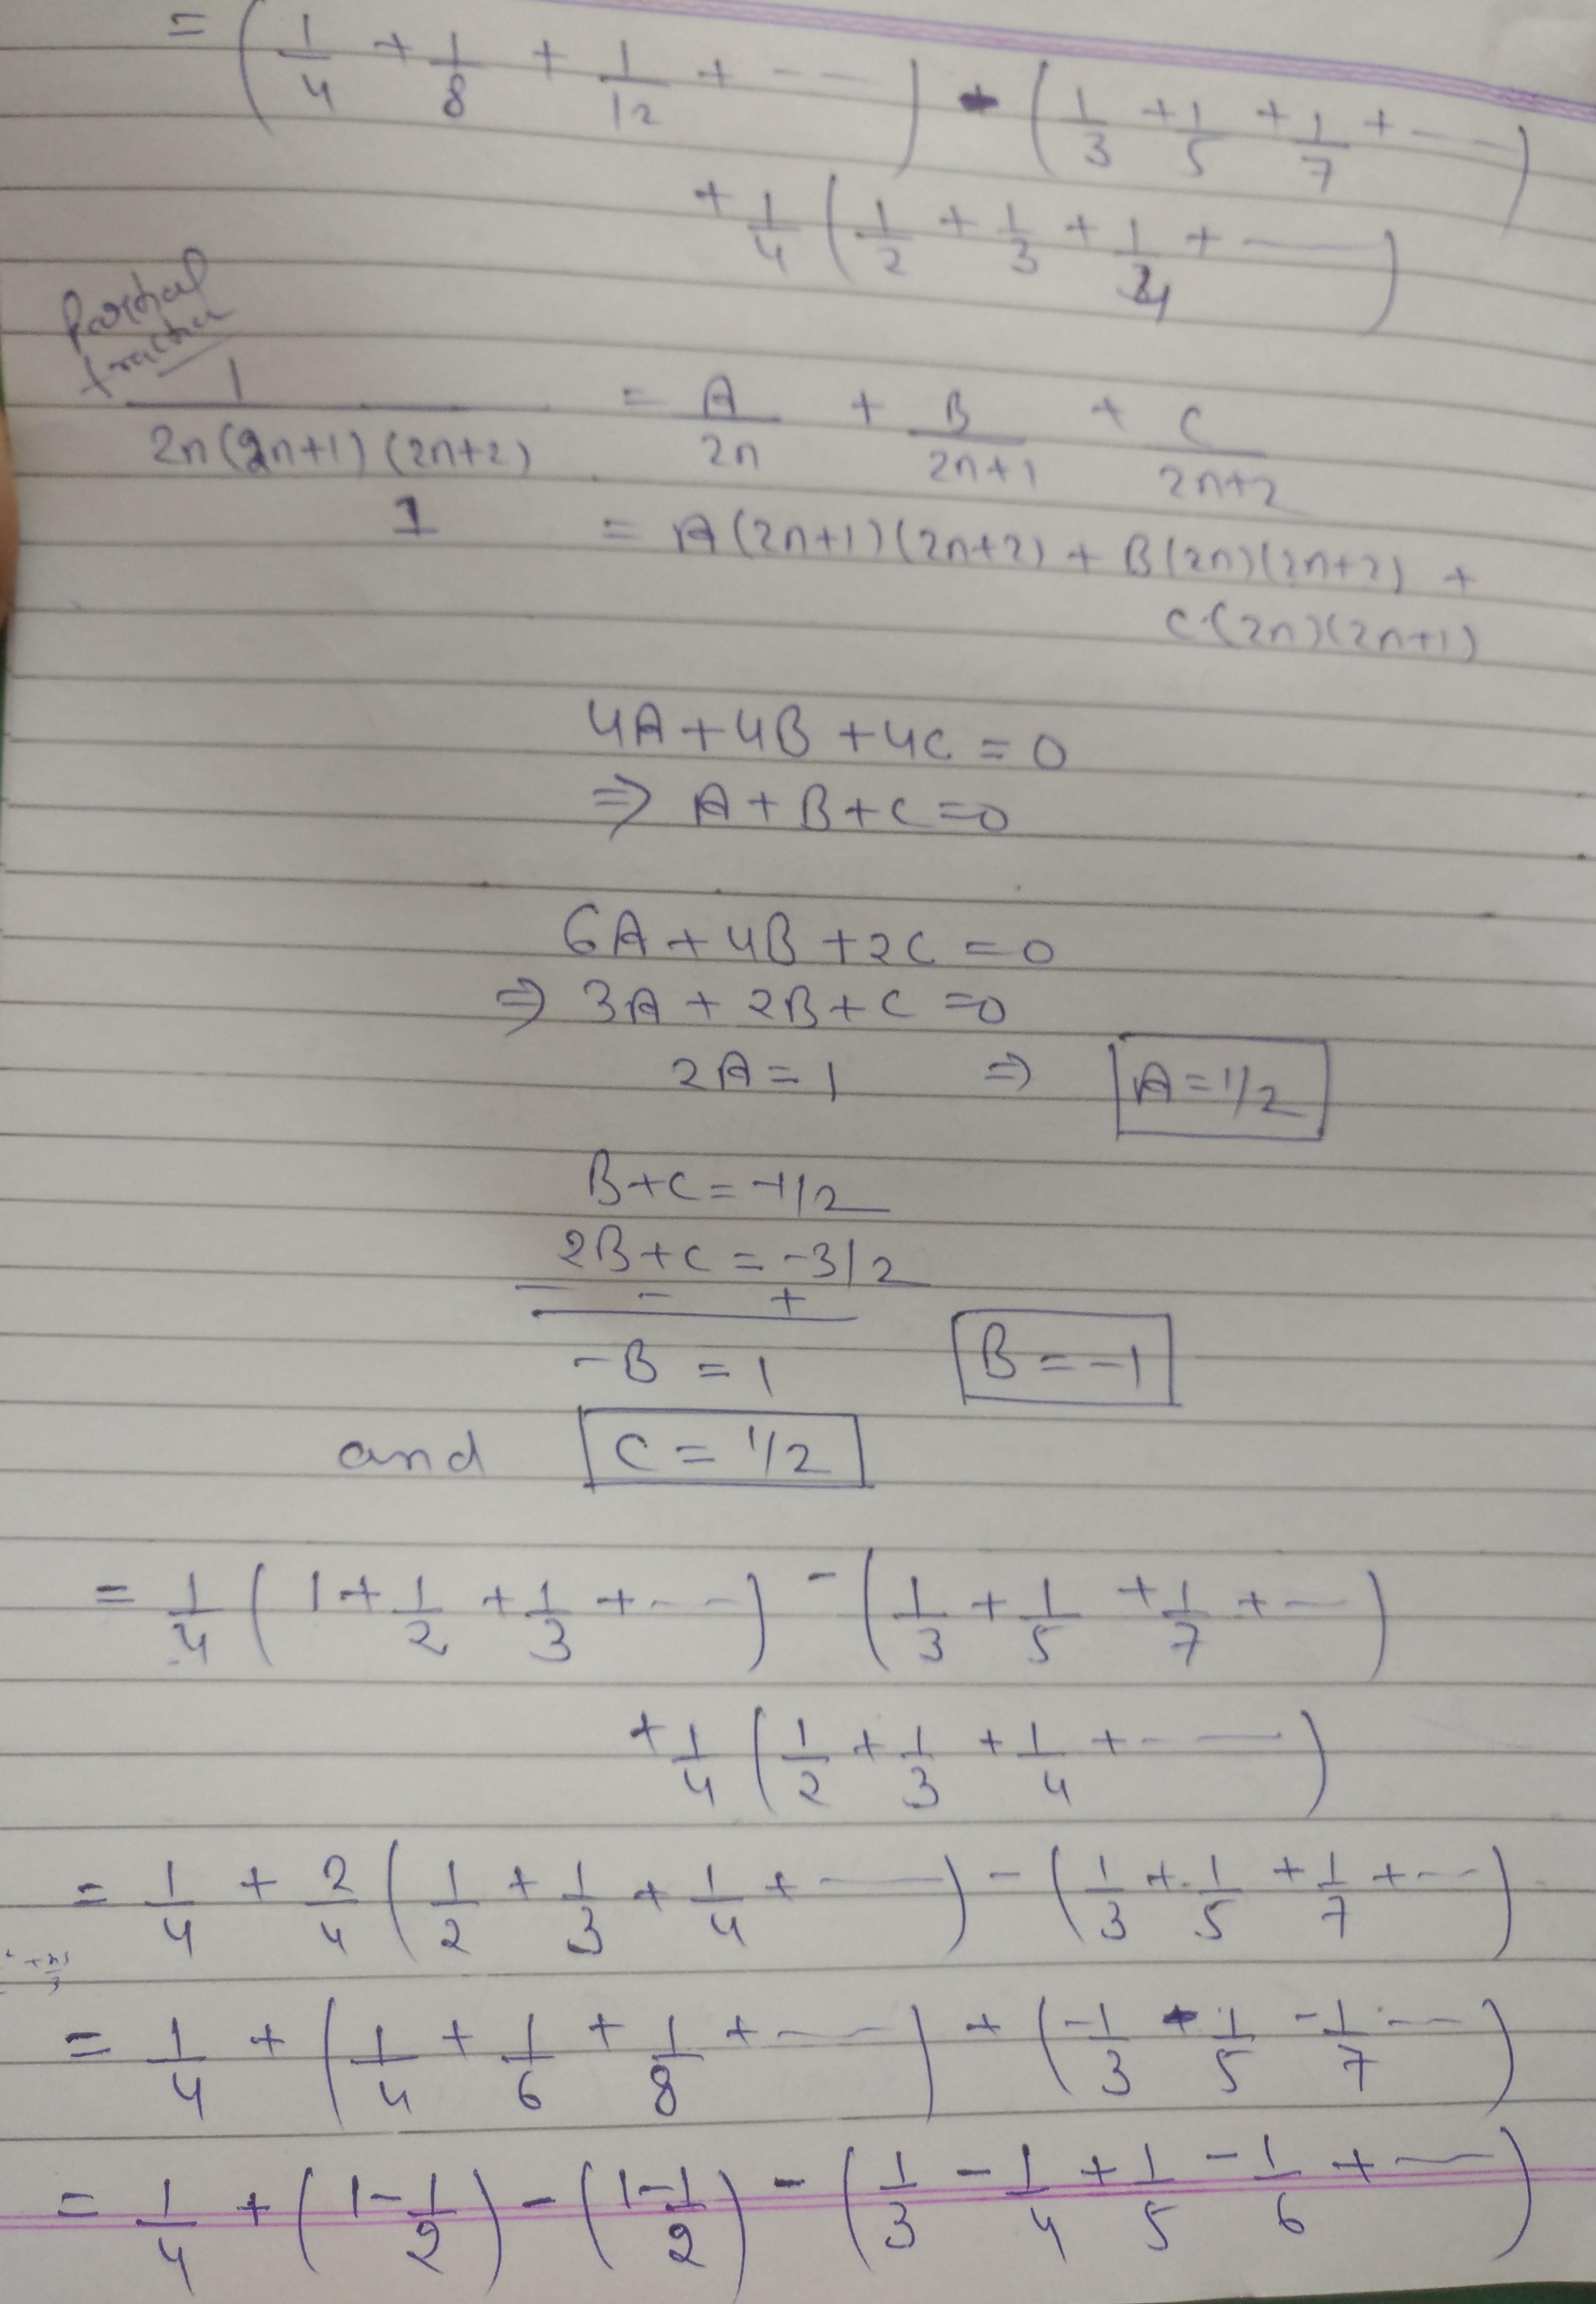 = (1/4 + 1/8 + 1/12 + ---) - (1/3 + 1/5 + 1/7 + ---)
+ 1/4 (1/2 + 1/3 + 1/4 + ---)
Partial
fraction
1/(2n(2n+1)(2n+2)) = A/2n + B/(2n+1) + C/(2n+2)
1 = A(2n+1)(2n+2) + B(2n)(2n+2) +
C(2n)(2n+1)
4A + 4B + 4C = 0
⇒ A + B + C = 0
6A + 4B + 2C = 0
⇒ 3A + 2B + C = 0
2A = 1 ⇒ A = 1/2
B + C = -1/2
2B + C = -3/2
- - +
-B = 1 B = -1
and C = 1/2
= 1/4 (1 + 1/2 + 1/3 + ---) - (1/3 + 1/5 + 1/7 + ---)
+ 1/4 (1/2 + 1/3 + 1/4 + ---)
= 1/4 + 2/4 (1/2 + 1/3 + 1/4 + ---) - (1/3 + 1/5 + 1/7 + ---)
= 1/4 + (1/4 + 1/6 + 1/8 + ---) + (-1/3 - 1/5 - 1/7 ---)
= 1/4 + (1 - 1/2) - (1 - 1/2) - (1/3 - 1/4 + 1/5 - 1/6 + ---)